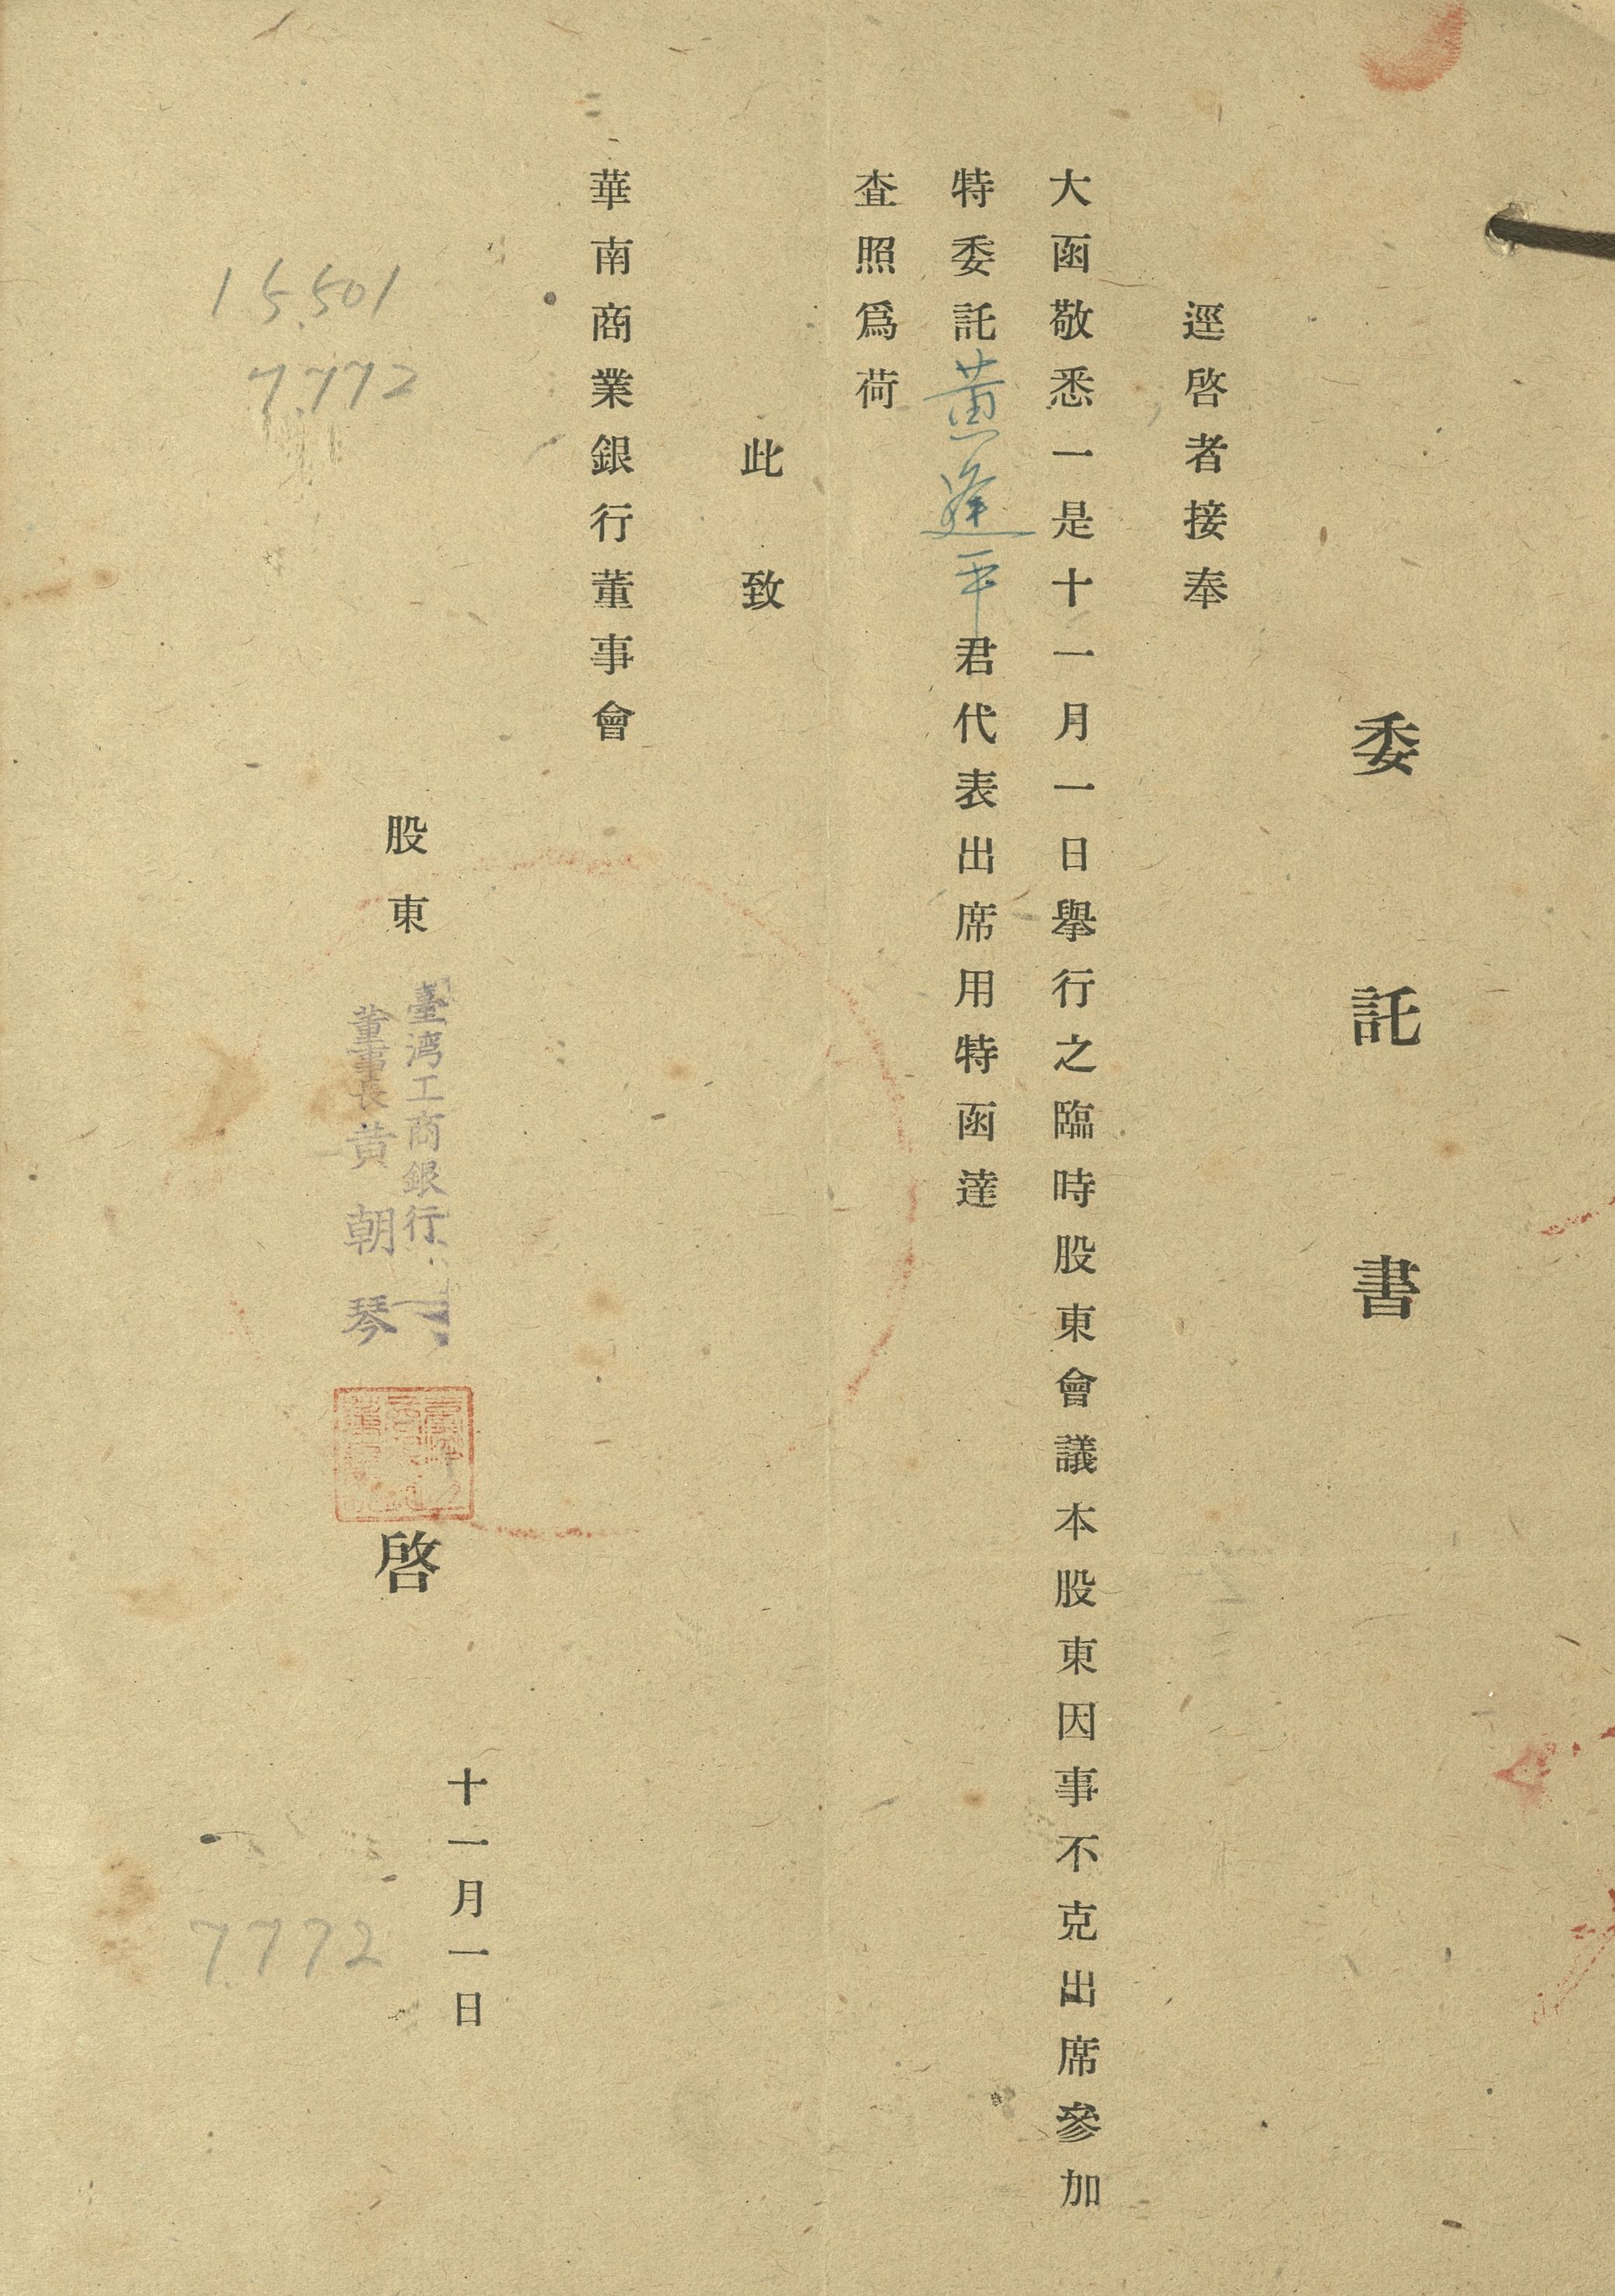 委託書
逕啓者接奉
大函敬悉一是十一月一日舉行之臨時股東會議本股東因事不克出席參加
特委託黃逢平君代表出席用特函達
査照爲荷
此致
華南商業銀行董事會
股東
臺湾工商銀行
董事長黄朝琴
啓
十一月一日
15,501
7,772
7,772